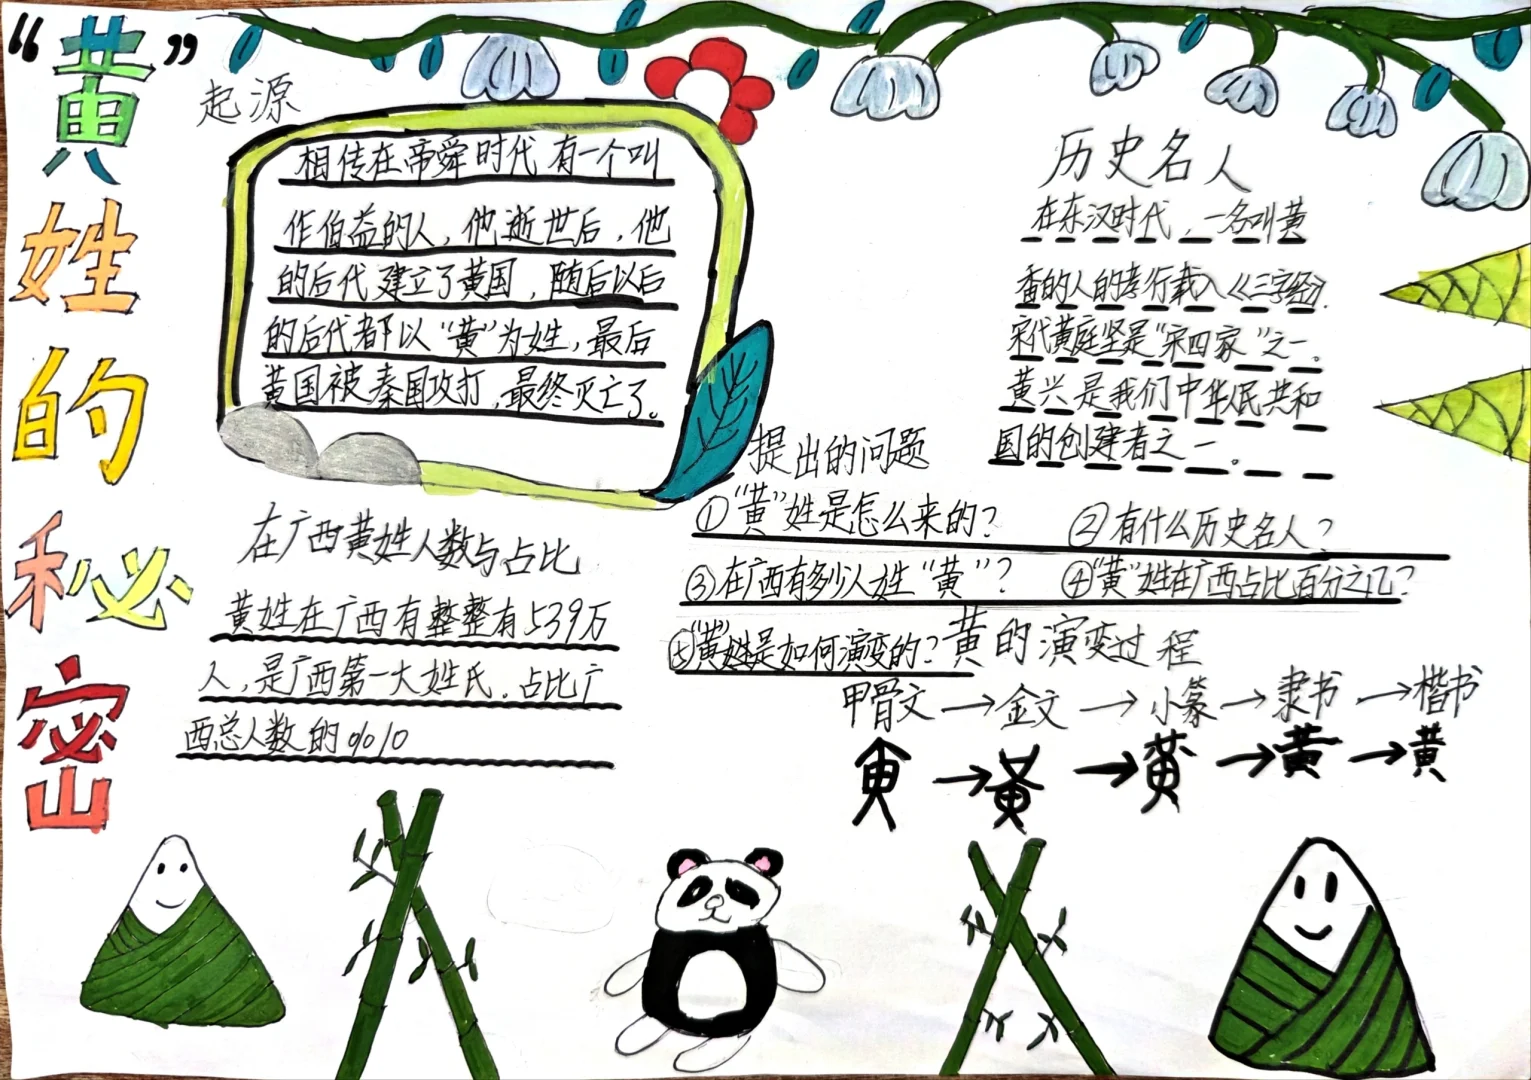 “黄”姓的秘密
起源
相传在帝舜时代有一个叫
作伯益的人，他逝世后，他
的后代建立了黄国，随后以后
的后代都以“黄”为姓，最后
黄国被秦国攻打，最终灭亡了。
历史名人
在东汉时代，一名叫黄
香的人的孝行载入《三字经》.
宋代黄庭坚是“宋四家”之一。
黄兴是我们中华人民共和
国的创建者之一。
提出的问题
①“黄”姓是怎么来的？ ②有什么历史名人？
③在广西有多少人姓“黄”？ ④“黄”姓在广西占比百分之几？
⑤“黄”姓是如何演变的？
在广西黄姓人数与占比
黄姓在广西有整整有539万
人，是广西第一大姓氏。占比广
西总人数的%10
黄的演变过程
甲骨文→金文→小篆→隶书→楷书
黄→黄→黄→黄→黄